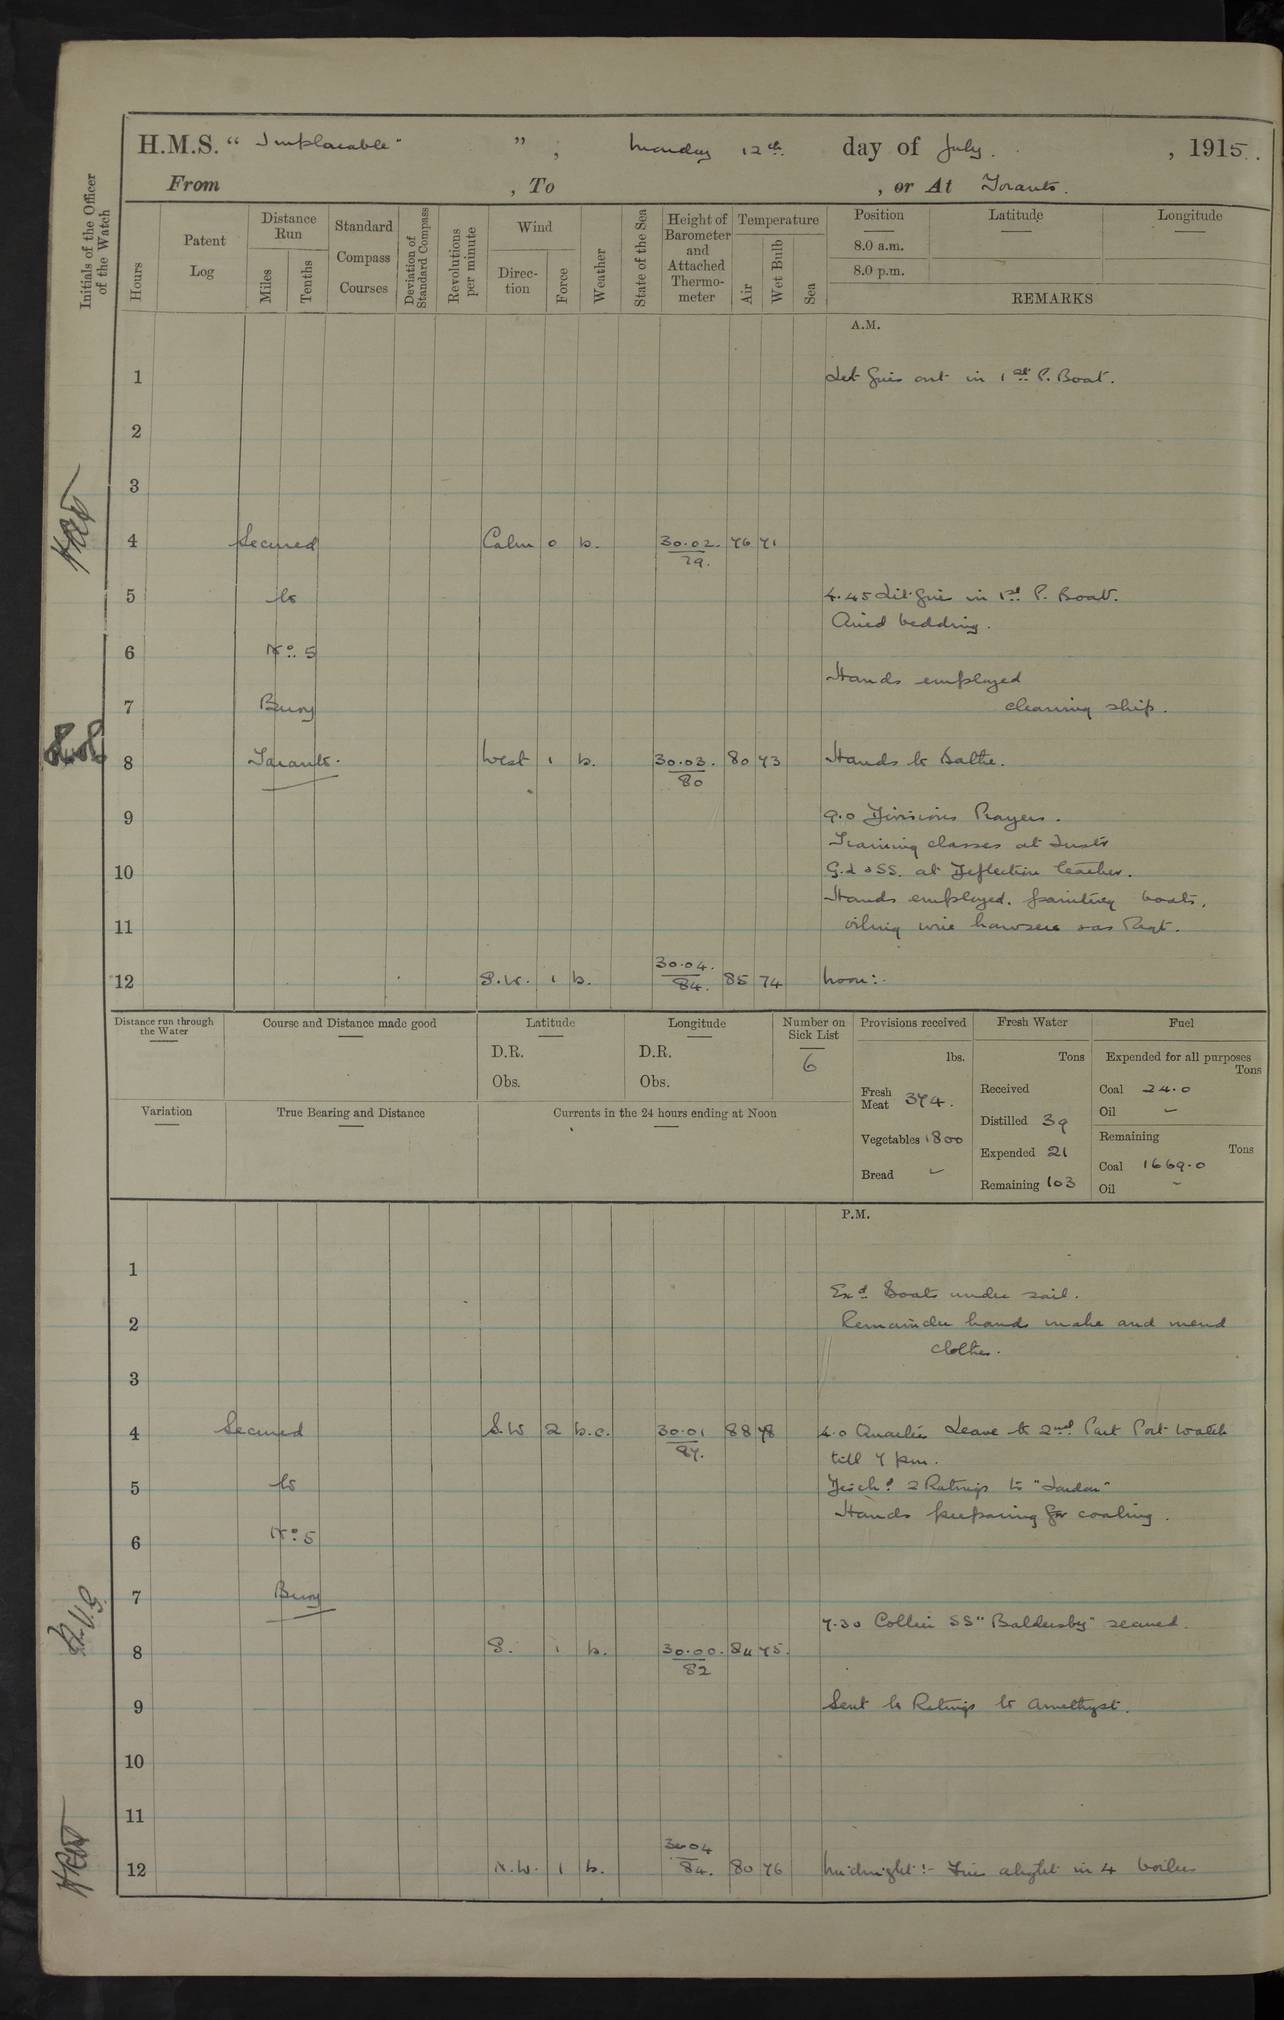 H.M.S. " Implacable " , Monday 12th day of July. , 1915.
From , To , or At Taranto.
Initials of the Officer of the Watch
Hours
Patent Log
Distance Run
Miles
Tenths
Standard Compass Courses
Deviation of Standard Compass
Revolutions per minute
Wind
Direction
Force
Weather
State of the Sea
Height of Barometer and Attached Thermometer
Temperature
Air
Wet Bulb
Sea
Position Latitude Longitude
8.0 a.m.
8.0 p.m.
REMARKS
A.M.
1 Let fires out in 1st P. Boat.
2
3
4 Secured Calm 0 b. 30.02. 76 71
79.
5 to 4.45 Lit fire in 1st P. Boat.
Aired bedding.
6 No. 5
Hands employed
7 Buoy cleaning ship.
8 Taranto. West 1 b. 30.03. 80 73 Hands to Bathe.
80
9 9.0 Divisions Prayers.
Training classes at Instr
10 G.L & SS. at Deflection teacher.
Hands employed. painting boats,
11 oiling wire hawsers &as Reqt.
30.04.
12 S.W. 1 b. 84. 85 74 Noon:-
Distance run through the Water
Course and Distance made good
Latitude
D.R.
Obs.
Longitude
D.R.
Obs.
Number on Sick List
6
Provisions received
lbs.
Fresh Meat 374.
Vegetables 1800
Bread -
Fresh Water
Tons
Received
Distilled 39
Expended 21
Remaining 103
Fuel
Expended for all purposes
Tons
Coal 24.0
Oil -
Remaining
Tons
Coal 1669.0
Oil -
Variation
True Bearing and Distance
Currents in the 24 hours ending at Noon
P.M.
1
Exd. Boats under sail.
2 Remainder hands make and mend
clothes.
3
4 Secured S.W 2 b.c. 30.01 88 78 4.0 Quarters Leave to 2nd Part Port Watch
87. till 7 pm.
5 to Disch'd 2 Ratings to "London"
Hands preparing for coaling.
6 No. 5
7 Buoy
7.30 Collier SS "Baldersby" secured.
8 S. 1 b. 30.00. 84 75.
82
9 Sent 6 Ratings to Amethyst.
10
11
30.04
12 N.W. 1 b. 84. 80 76 Midnight:- Fires alight in 4 boilers